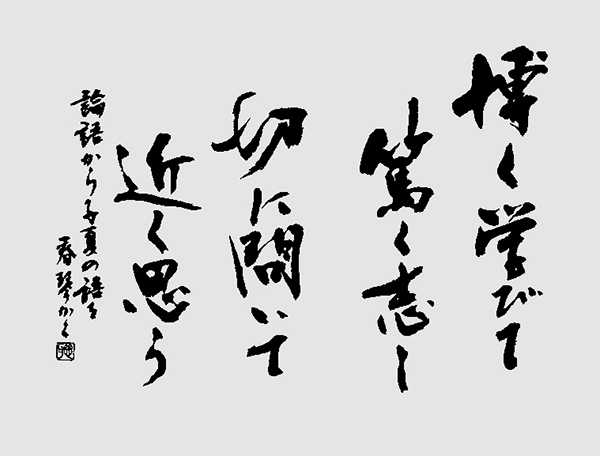 博く学びて
篤く志し
切に問いて
近く思う
論語から子夏の語を
春琴かく